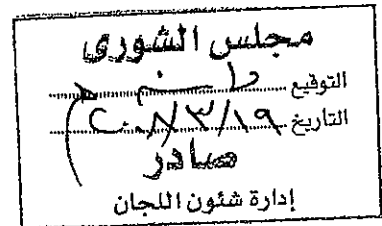 مجلس الشورى
التوقيع
التاريخ ٢٠٠٨/٣/١٩
صادر
إدارة شئون اللجان